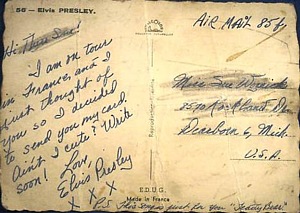 56 - Elvis PRESLEY.
AIR MAIL 85f
Hi There Sue!
I am on Tour
in France, and I
just thought of
you so I decided
to send you my card.
Ain't I cute? Write
soon!
Love,
Elvis Presley
X X X
Miss Sue
Dearborn 6, Mich.
U.S.A.
E.D.U.G.
Made in France
P.S. This song is just for you "Teddy Bear"